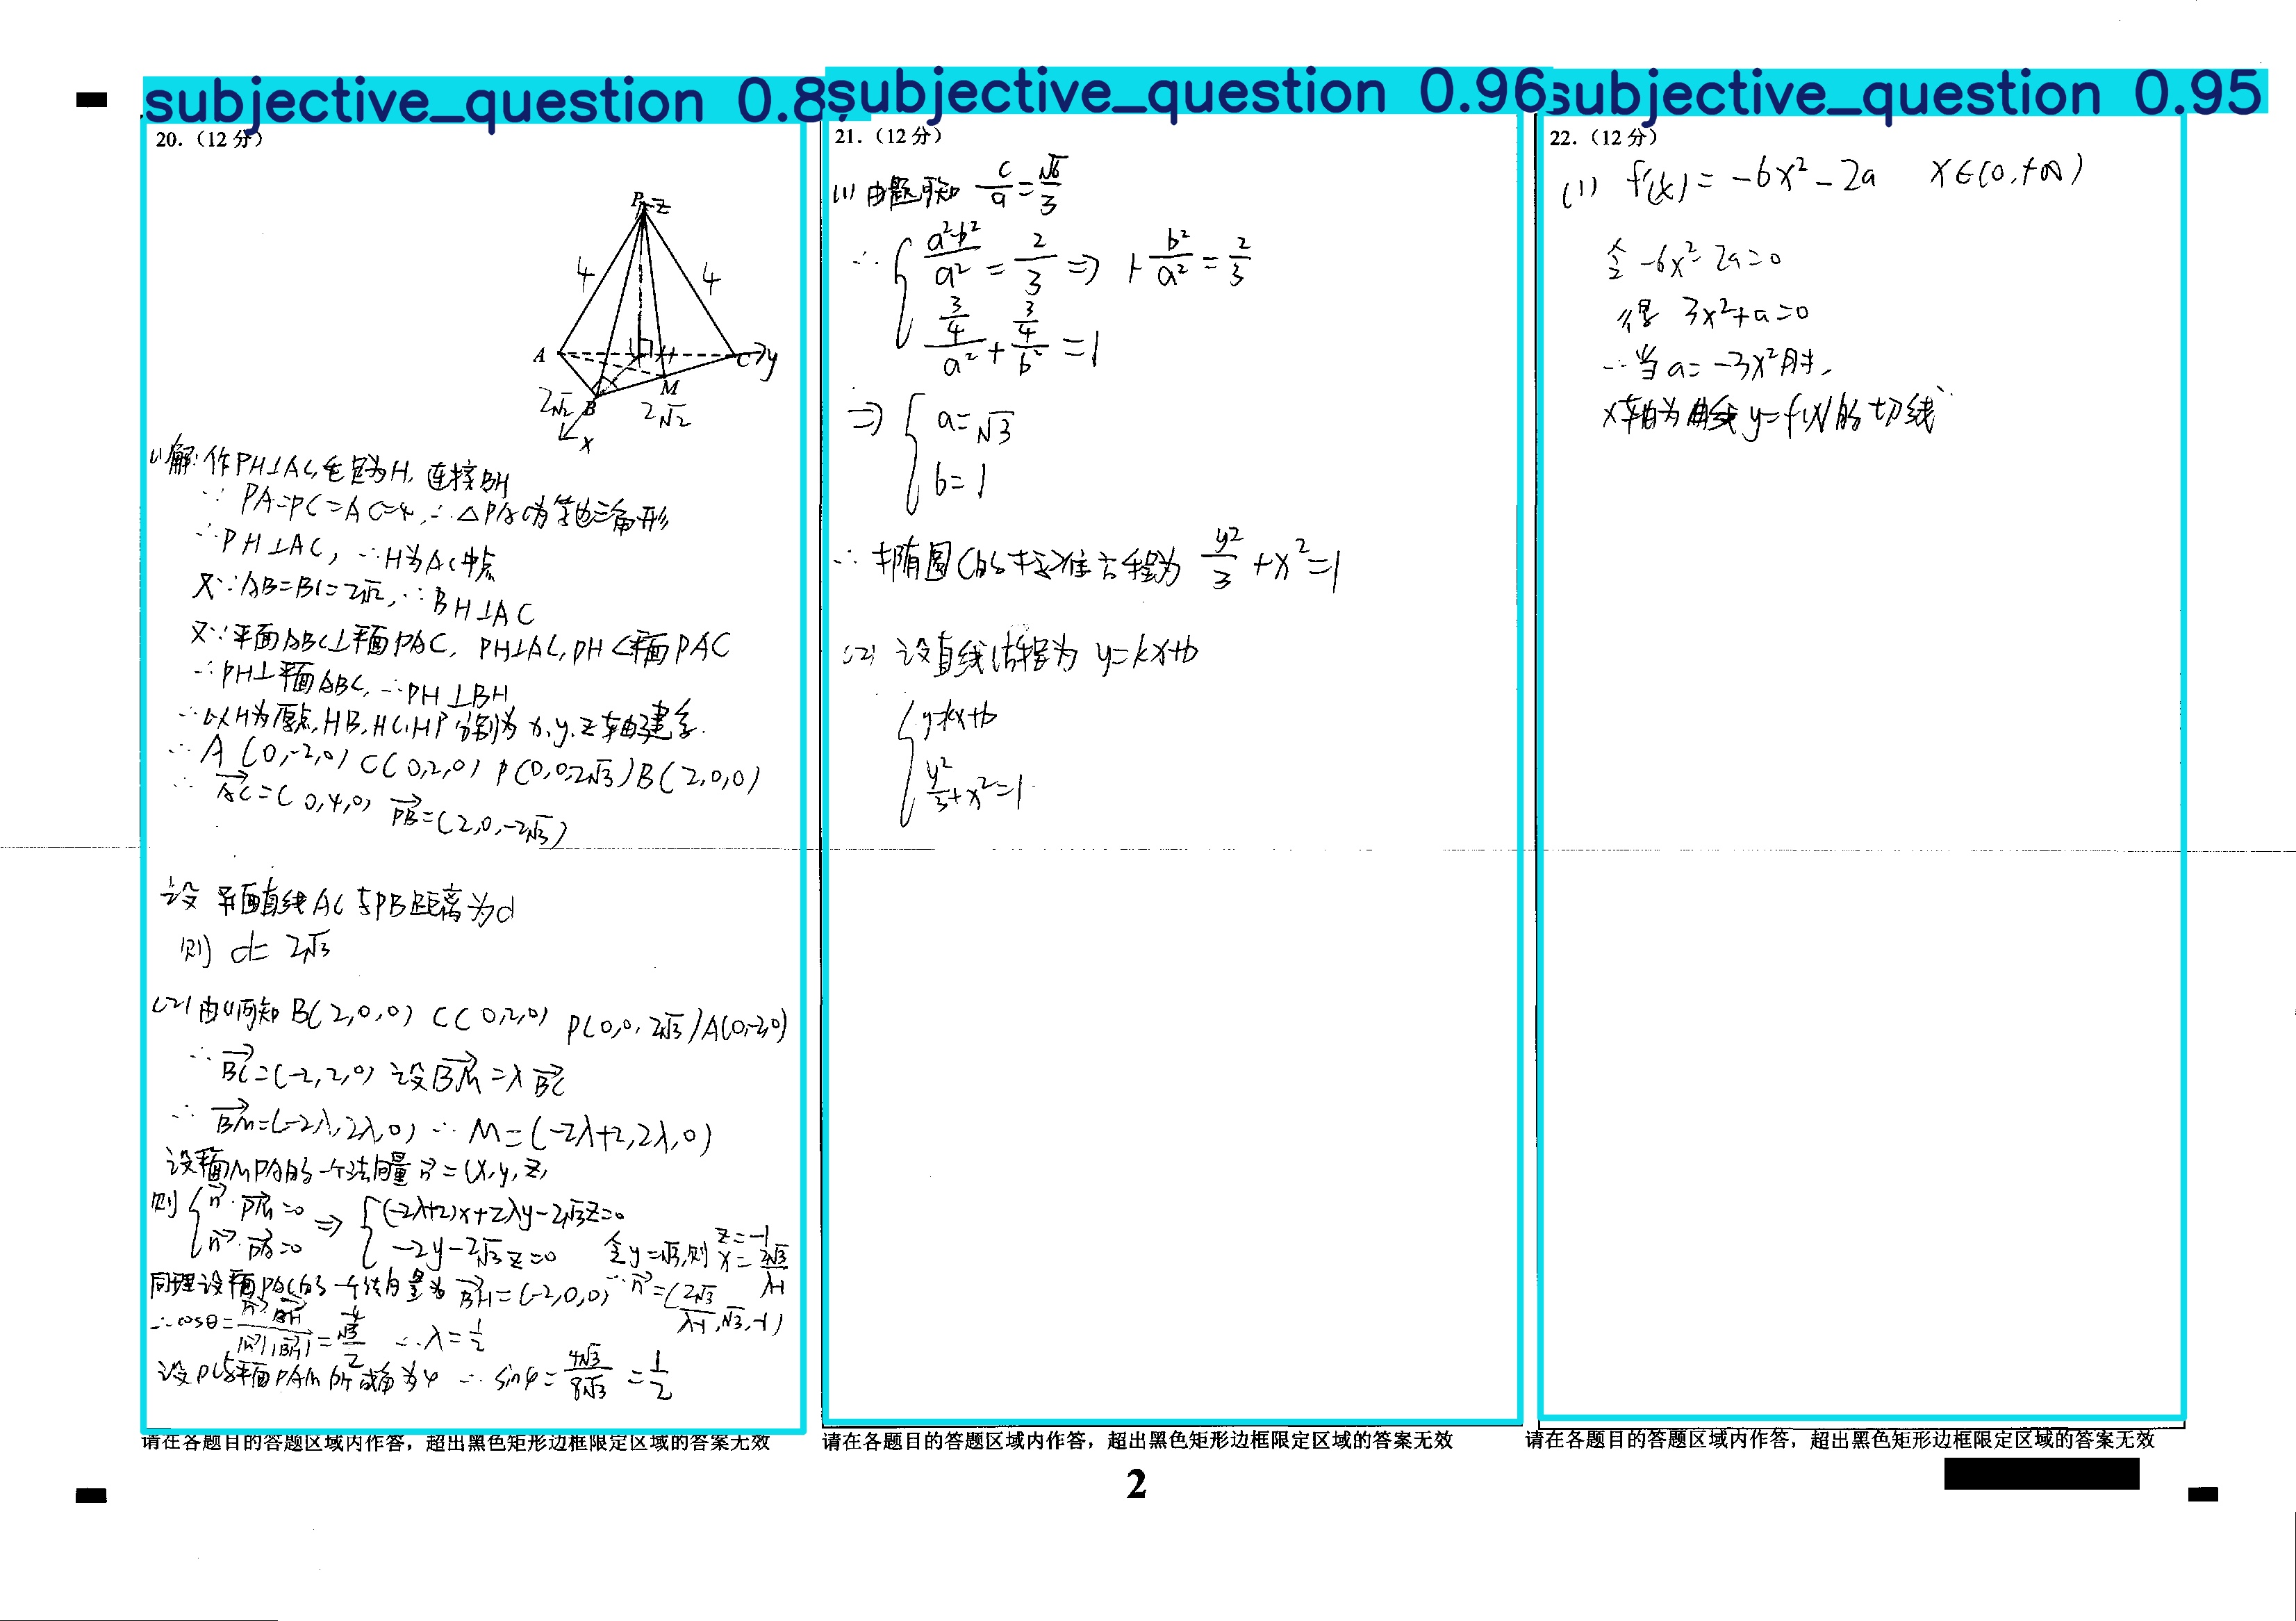 subjective_question 0.8
20.（12 分）
P
z
4
4
A
C
y
M
B
2√2
2√2
x
(1)解:作PH⊥AC,垂足为H, 连接BH
∵ PA=PC=AC=4,∴△PAC为等边三角形
∵PH⊥AC, ∴H为AC中点
又∵AB=BC=2√2,∴BH⊥AC
又∵平面ABC⊥平面PAC, PH⊥AC,PH⊂平面PAC
∴PH⊥平面ABC, ∴PH⊥BH
∴以H为原点,HB,HC,HP分别为x,y,z轴建系.
∴A(0,-2,0) C(0,2,0) P(0,0,2√3) B(2,0,0)
∴ AC→=(0,4,0) PB→=(2,0,-2√3)
设 异面直线AC与PB距离为d
则 d= 2√3
(2) 由(1)问知 B(2,0,0) C(0,2,0) P(0,0,2√3) A(0,-2,0)
∴ BC→=(-2,2,0) 设BM→=λBC→
∴ BM→=(-2λ,2λ,0) ∴ M=(-2λ+2,2λ,0)
设平面MPA的一个法向量n→=(x,y,z)
则 { n→·PM→=0 ⇒ { (-2λ+2)x+2λy-2√3z=0
n→·PA→=0 -2y-2√3z=0 令y=√3,则 z=-1 x=2√3/(λ-1)
同理设平面PAC的一个法向量为BH→=(-2,0,0) ∴n→=(2√3/(λ-1),√3,-1)
∴cosθ= n→·BH→/|n→||BH→| = √3/2 ∴λ=1/2
设PC与平面PAM所成角为φ ∴ sinφ=4√3/8√3=1/2
请在各题目的答题区域内作答，超出黑色矩形边框限定区域的答案无效
subjective_question 0.96
21.（12 分）
(1) 由题可知 c/a=√6/3
∴ { (a²-b²)/a²=2/3 ⇒ 1-b²/a²=2/3
(3/4)/a²+(3/4)/b²=1
⇒ { a=√3
b=1
∴ 椭圆C的标准方程为 y²/3+x²=1
(2) 设直线l方程为 y=kx+b
{ y=kx+b
y²/3+x²=1
请在各题目的答题区域内作答，超出黑色矩形边框限定区域的答案无效
2
subjective_question 0.95
22.（12 分）
(1) f'(x)=-6x²-2a x∈(0,+∞)
令 -6x²-2a=0
得 3x²+a=0
∴当 a=-3x²时,
x轴为曲线y=f(x)的切线
请在各题目的答题区域内作答，超出黑色矩形边框限定区域的答案无效